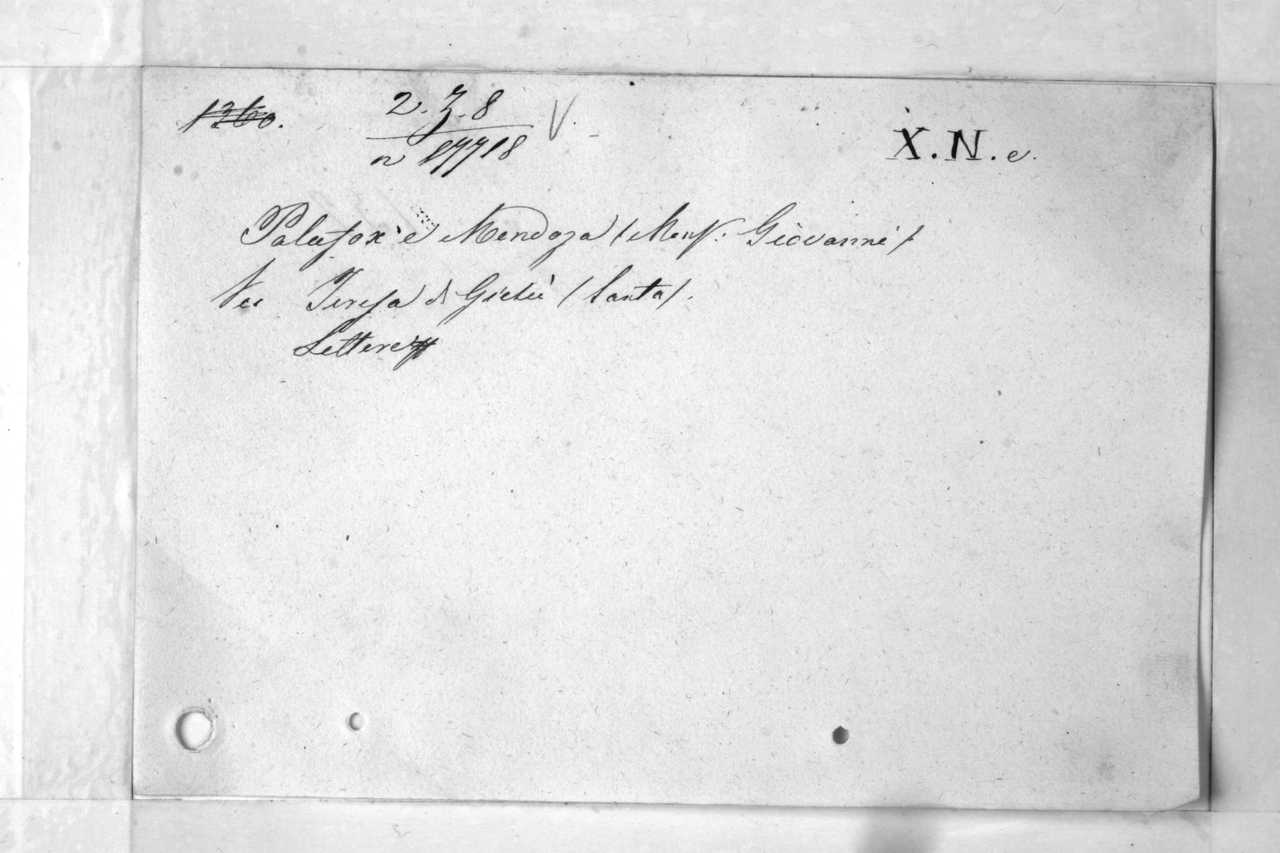 1360.
2.Z.8 V.
n 17718
X.N.e.
Palafox e Mendoza (Mons. Giovanni)
Ved Teresa di Giesù (Santa).
Lettere